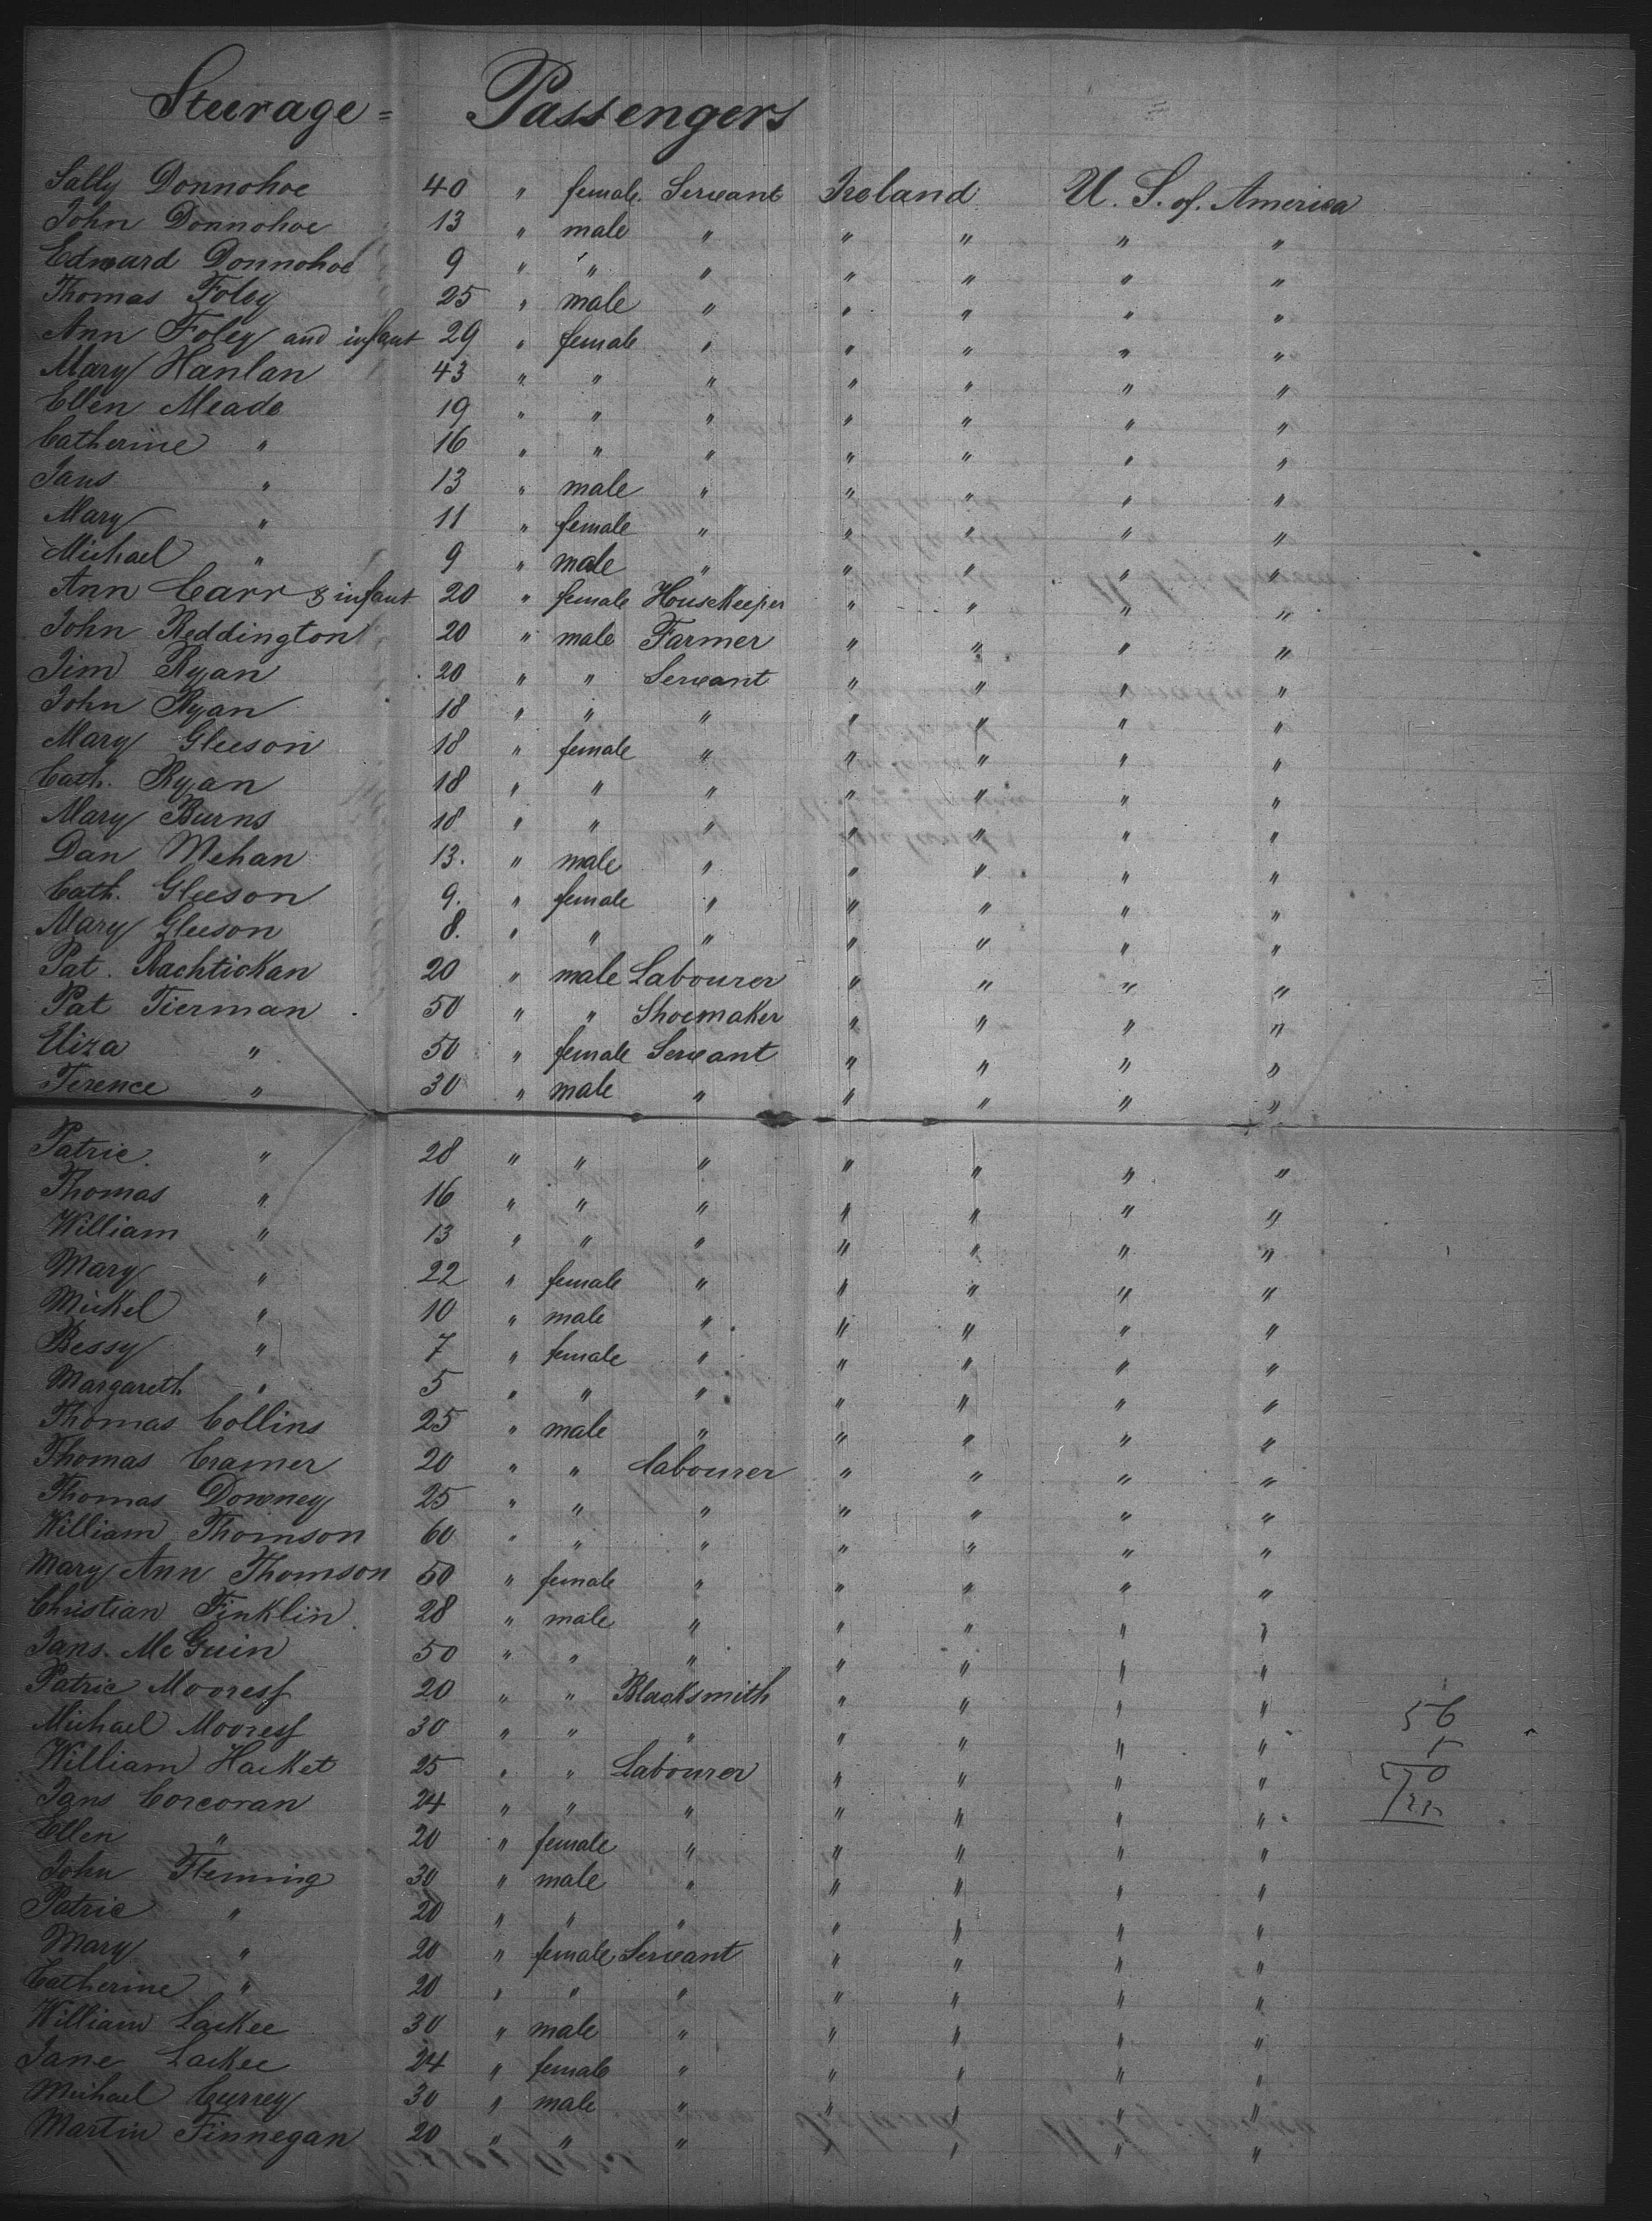 Steerage = Passengers
Sally Donnohoe 40 " female. Servant Ireland U. S. of. America
John Donnohoe 13 " male " " " " "
Edward Donnohoe 9 " " " " " " "
Thomas Foley 25 " male " " " " "
Ann Foley and infant 29 " female " " " " "
Mary Hanlan 43 " " " " " " "
Ellen Meade 19 " " " " " " "
Catherine " 16 " " " " " " "
Jans " 13 " male " " " " "
Mary " 11 " female " " " " "
Michael " 9 " male " " " " "
Ann Carr & infant 20 " female Housekeeper " " " "
John Reddington 20 " male Farmer " " " "
Jim Ryan 20 " " Servant " " " "
John Ryan 18 " " " " " " "
Mary Gleeson 18 " female " " " " "
Cath. Ryan 18 " " " " " " "
Mary Burns 18 " " " " " " "
Dan Mehan 13. " male " " " " "
Cath. Gleeson 9. " female " " " " "
Mary Gleeson 8. " " " " " " "
Pat. Rachtickan 20 " male Labourer " " " "
Pat Tierman 50 " " Shoemaker " " " "
Eliza " 50 " female Servant " " " "
Terence " 30 " male " " " " "
Patric " 28 " " " " " " "
Thomas " 16 " " " " " " "
William " 13 " " " " " " "
Mary " 22 " female " " " " "
Mickel " 10 " male " " " " "
Bessy " 7 " female " " " " "
Margareth " 5 " " " " " " "
Thomas Collins 25 " male " " " " "
Thomas Cramer 20 " " labourer " " " "
Thomas Downey 25 " " " " " " "
William Thomson 60 " " " " " " "
Mary Ann Thomson 50 " female " " " " "
Christian Finklin 28 " male " " " " "
Jans. Mc Guin 50 " " " " " " "
Patric Mooress 20 " " Blacksmith " " " "
Michael Mooress 30 " " " " " " " 56
William Hacket 25 " " Labourer " " " "
Jans Corcoran 24 " " " " " " "
Ellen " 20 " female " " " " "
John Fleming 30 " male " " " " "
Patric " 20 " " " " " " "
Mary " 20 " female Servant " " " "
Catherine " 20 " " " " " " "
William Lackee 30 " male " " " " "
Jane Lackee 24 " female " " " " "
Michael Currey 30 " male " " " " "
Martin Finnegan 20 " " " " " " "